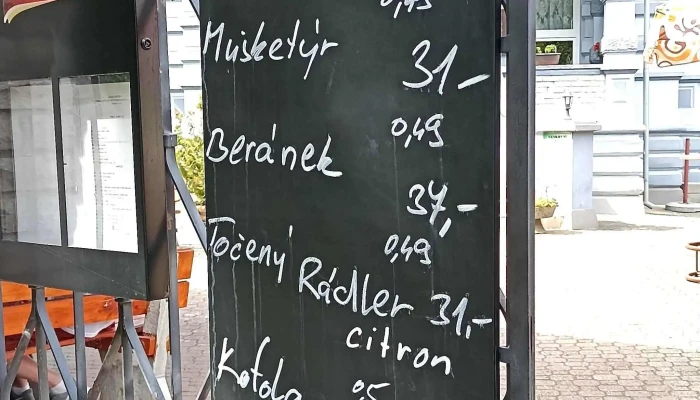 0,49
Mušketýr
31,-
0,49
Beránek
37,-
0,49
Točený Rádler 31,-
citron
Kofola 0,5